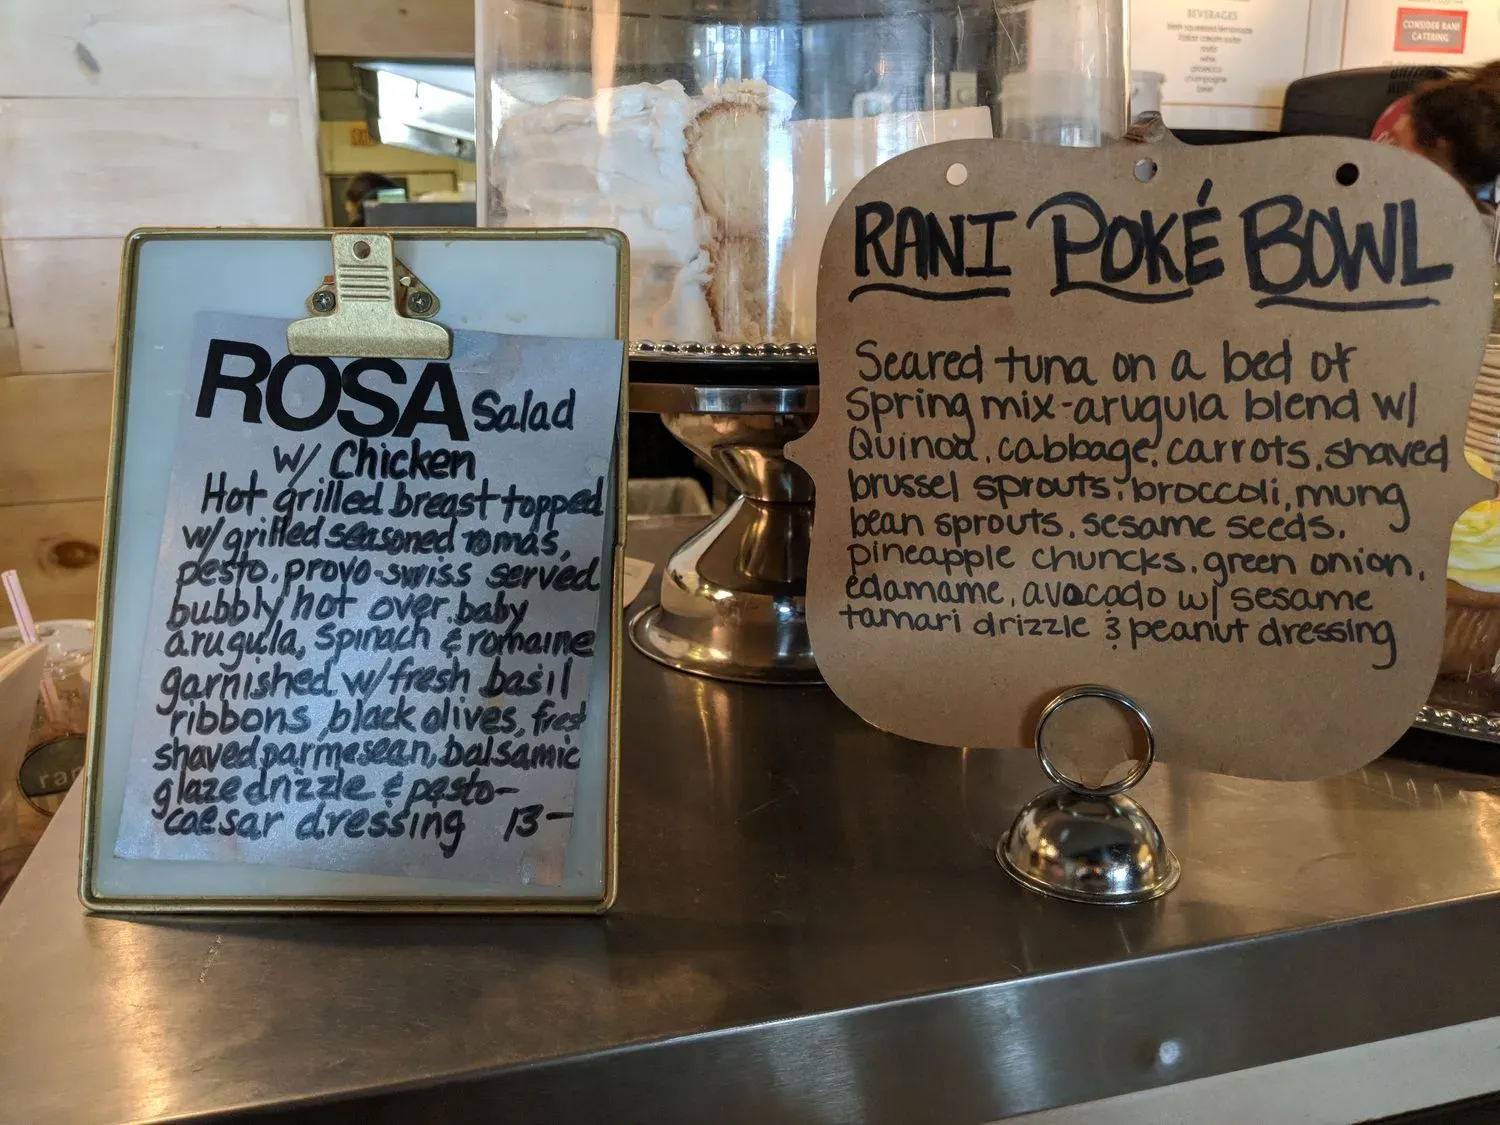 ROSA Salad
w/ Chicken
Hot grilled breast topped
w/grilled seasoned romas,
pesto, provo-swiss served
bubbly hot over baby
arugula, spinach & romaine
garnished w/fresh basil
ribbons, black olives, fresh
shaved parmesean, balsamic
glaze drizzle & pesto-
caesar dressing 13-
RANI POKÉ BOWL
Seared tuna on a bed of
Spring mix-arugula blend w/
Quinoa, cabbage, carrots, shaved
brussel sprouts, broccoli, mung
bean sprouts, sesame seeds,
pineapple chuncks, green onion,
edamame, avocado w/ sesame
tamari drizzle & peanut dressing
BEVERAGES
fresh squeezed lemonade
italian cream soda
wine
prosecco
champagne
beer
CONSIDER RANI
CATERING